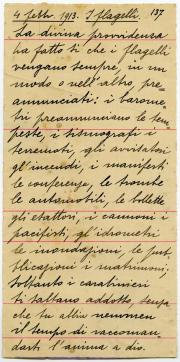 4 febbr. 1913. I flagelli. 137
La divina provvidenza
ha fatto sì che i flagelli
vengano sempre, in un
modo o nell'altro, pre-
annunciati: i barome-
tri preannunciano le tem-
peste, i sismografi i
terremoti, gli avvisatori
gl'incendi, i manifesti
le conferenze, le trombe
le automobili, le bollette
gli esattori, i cannoni i
pacifisti, gl'idrometri
le inondazioni, le pub-
blicazioni i matrimoni;
soltanto i carabinieri
ti saltano addosso, senza
che tu abbia nemmeno
il tempo di raccoman-
darti l'anima a dio.